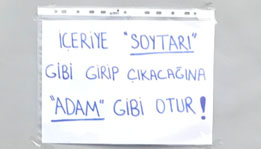 İÇERİYE "SOYTARI"
GİBİ GİRİP ÇIKACAĞINA
"ADAM" GİBİ OTUR!